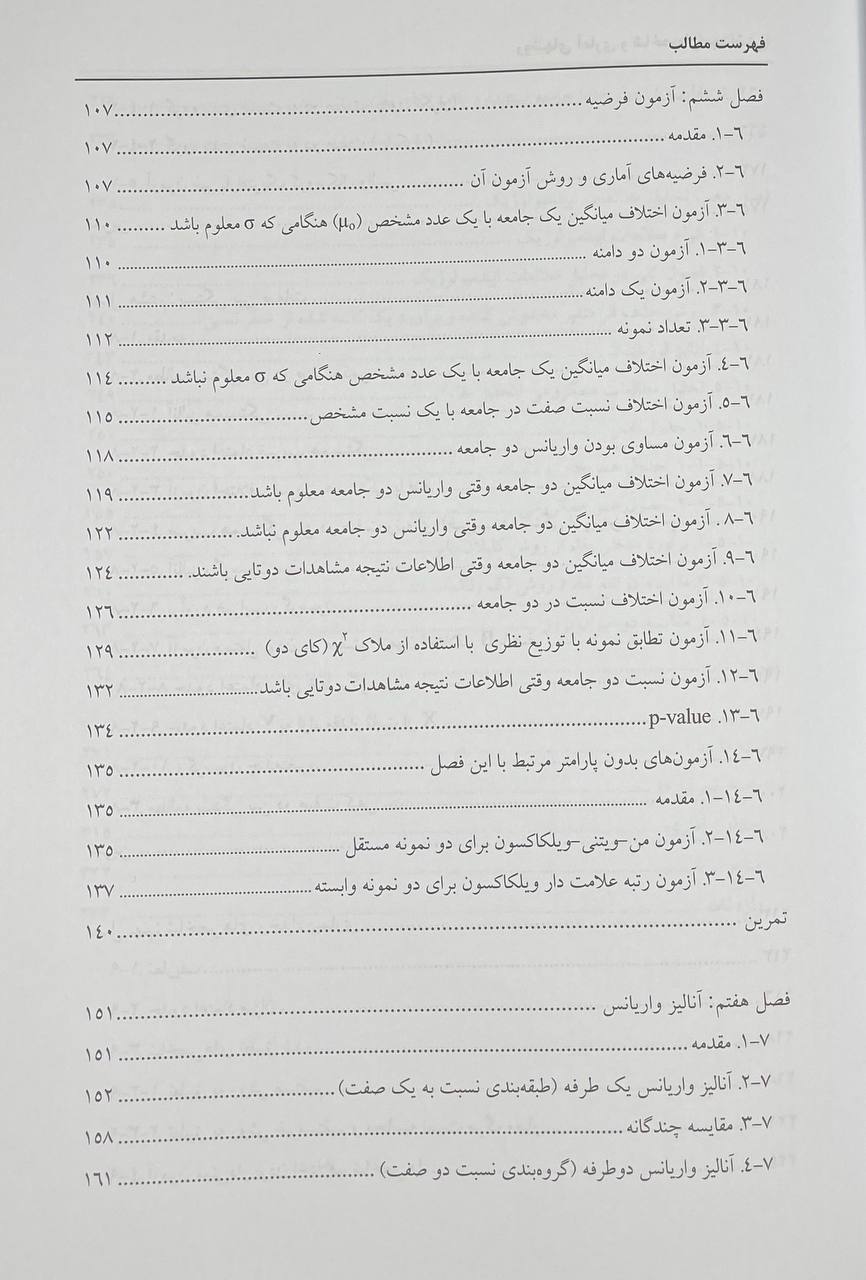 فهرست مطالب
فصل ششم: آزمون فرضیه ........ ۱۰۷
۶-۱. مقدمه ........ ۱۰۷
۶-۲. فرضیه‌های آماری و روش آزمون آن ........ ۱۰۷
۶-۳. آزمون اختلاف میانگین یک جامعه با یک عدد مشخص (μ₀) هنگامی که σ معلوم باشد ........ ۱۱۰
۶-۳-۱. آزمون دو دامنه ........ ۱۱۰
۶-۳-۲. آزمون یک دامنه ........ ۱۱۱
۶-۳-۳. تعداد نمونه ........ ۱۱۲
۶-۴. آزمون اختلاف میانگین یک جامعه با یک عدد مشخص هنگامی که σ معلوم نباشد ........ ۱۱۴
۶-۵. آزمون اختلاف نسبت صفت در جامعه با یک نسبت مشخص ........ ۱۱۵
۶-۶. آزمون مساوی بودن واریانس دو جامعه ........ ۱۱۸
۶-۷. آزمون اختلاف میانگین دو جامعه وقتی واریانس دو جامعه معلوم باشد ........ ۱۱۹
۶-۸. آزمون اختلاف میانگین دو جامعه وقتی واریانس دو جامعه معلوم نباشد ........ ۱۲۲
۶-۹. آزمون اختلاف میانگین دو جامعه وقتی اطلاعات نتیجه مشاهدات دوتایی باشند ........ ۱۲۴
۶-۱۰. آزمون اختلاف نسبت در دو جامعه ........ ۱۲۶
۶-۱۱. آزمون تطابق نمونه با توزیع نظری با استفاده از ملاک χ۲ (کای دو) ........ ۱۲۹
۶-۱۲. آزمون نسبت دو جامعه وقتی اطلاعات نتیجه مشاهدات دوتایی باشد ........ ۱۳۲
۶-۱۳. p-value ........ ۱۳۴
۶-۱۴. آزمون‌های بدون پارامتر مرتبط با این فصل ........ ۱۳۵
۶-۱۴-۱. مقدمه ........ ۱۳۵
۶-۱۴-۲. آزمون من-ویتنی-ویلکاکسون برای دو نمونه مستقل ........ ۱۳۵
۶-۱۴-۳. آزمون رتبه علامت دار ویلکاکسون برای دو نمونه وابسته ........ ۱۳۷
تمرین ........ ۱۴۰
فصل هفتم: آنالیز واریانس ........ ۱۵۱
۷-۱. مقدمه ........ ۱۵۱
۷-۲. آنالیز واریانس یک طرفه (طبقه‌بندی نسبت به یک صفت) ........ ۱۵۲
۷-۳. مقایسه چندگانه ........ ۱۵۸
۷-۴. آنالیز واریانس دوطرفه (گروه‌بندی نسبت دو صفت) ........ ۱۶۱